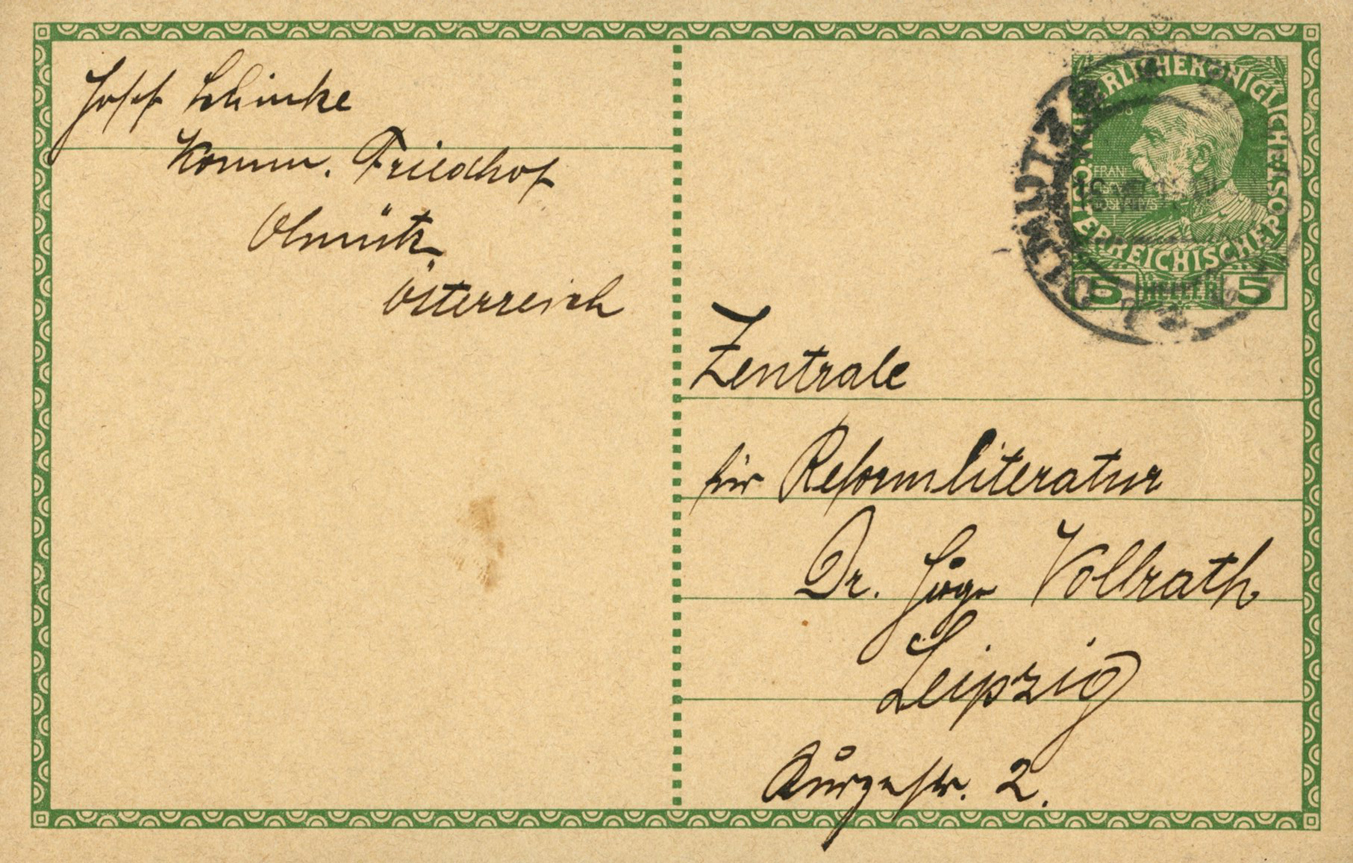 Josef
Komm. Friedhof
Olmütz
Österreich
KÖNIGLICHE
ÖSTERREICHISCHE POST
5 HELLER 5
OLMÜTZ
Zentrale
für Reformliteratur
Dr. Hugo Vollrath
Leipzig
Kurzestr. 2.